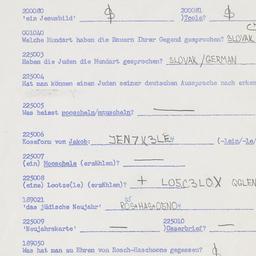 200080 200081
'ein Jesusbild' )Tools?
001040
Welche Mundart haben die Bauern Ihrer Gegend gesprochen? SLOVAK
225003
Haben die Juden die Mundart gesprochen? SLOVAK/GERMAN
225004
Hat man können einen Juden seiner deutschen Aussprache nach erken
225005
Was heisst mooscheln/muscheln?
225006
Koseform von Jakob: (-lein/-le/
225007
(ein) Mooschele (erzählen)?
225008
(eine) Lootze(le) (erzählen)? +
189021
'das jüdische Neujahr'
225009 225010
'Neujahrskarte' )Osserbrief?
189050
Was hat man zu Ehren von Rosch-Haschoone gegessen?